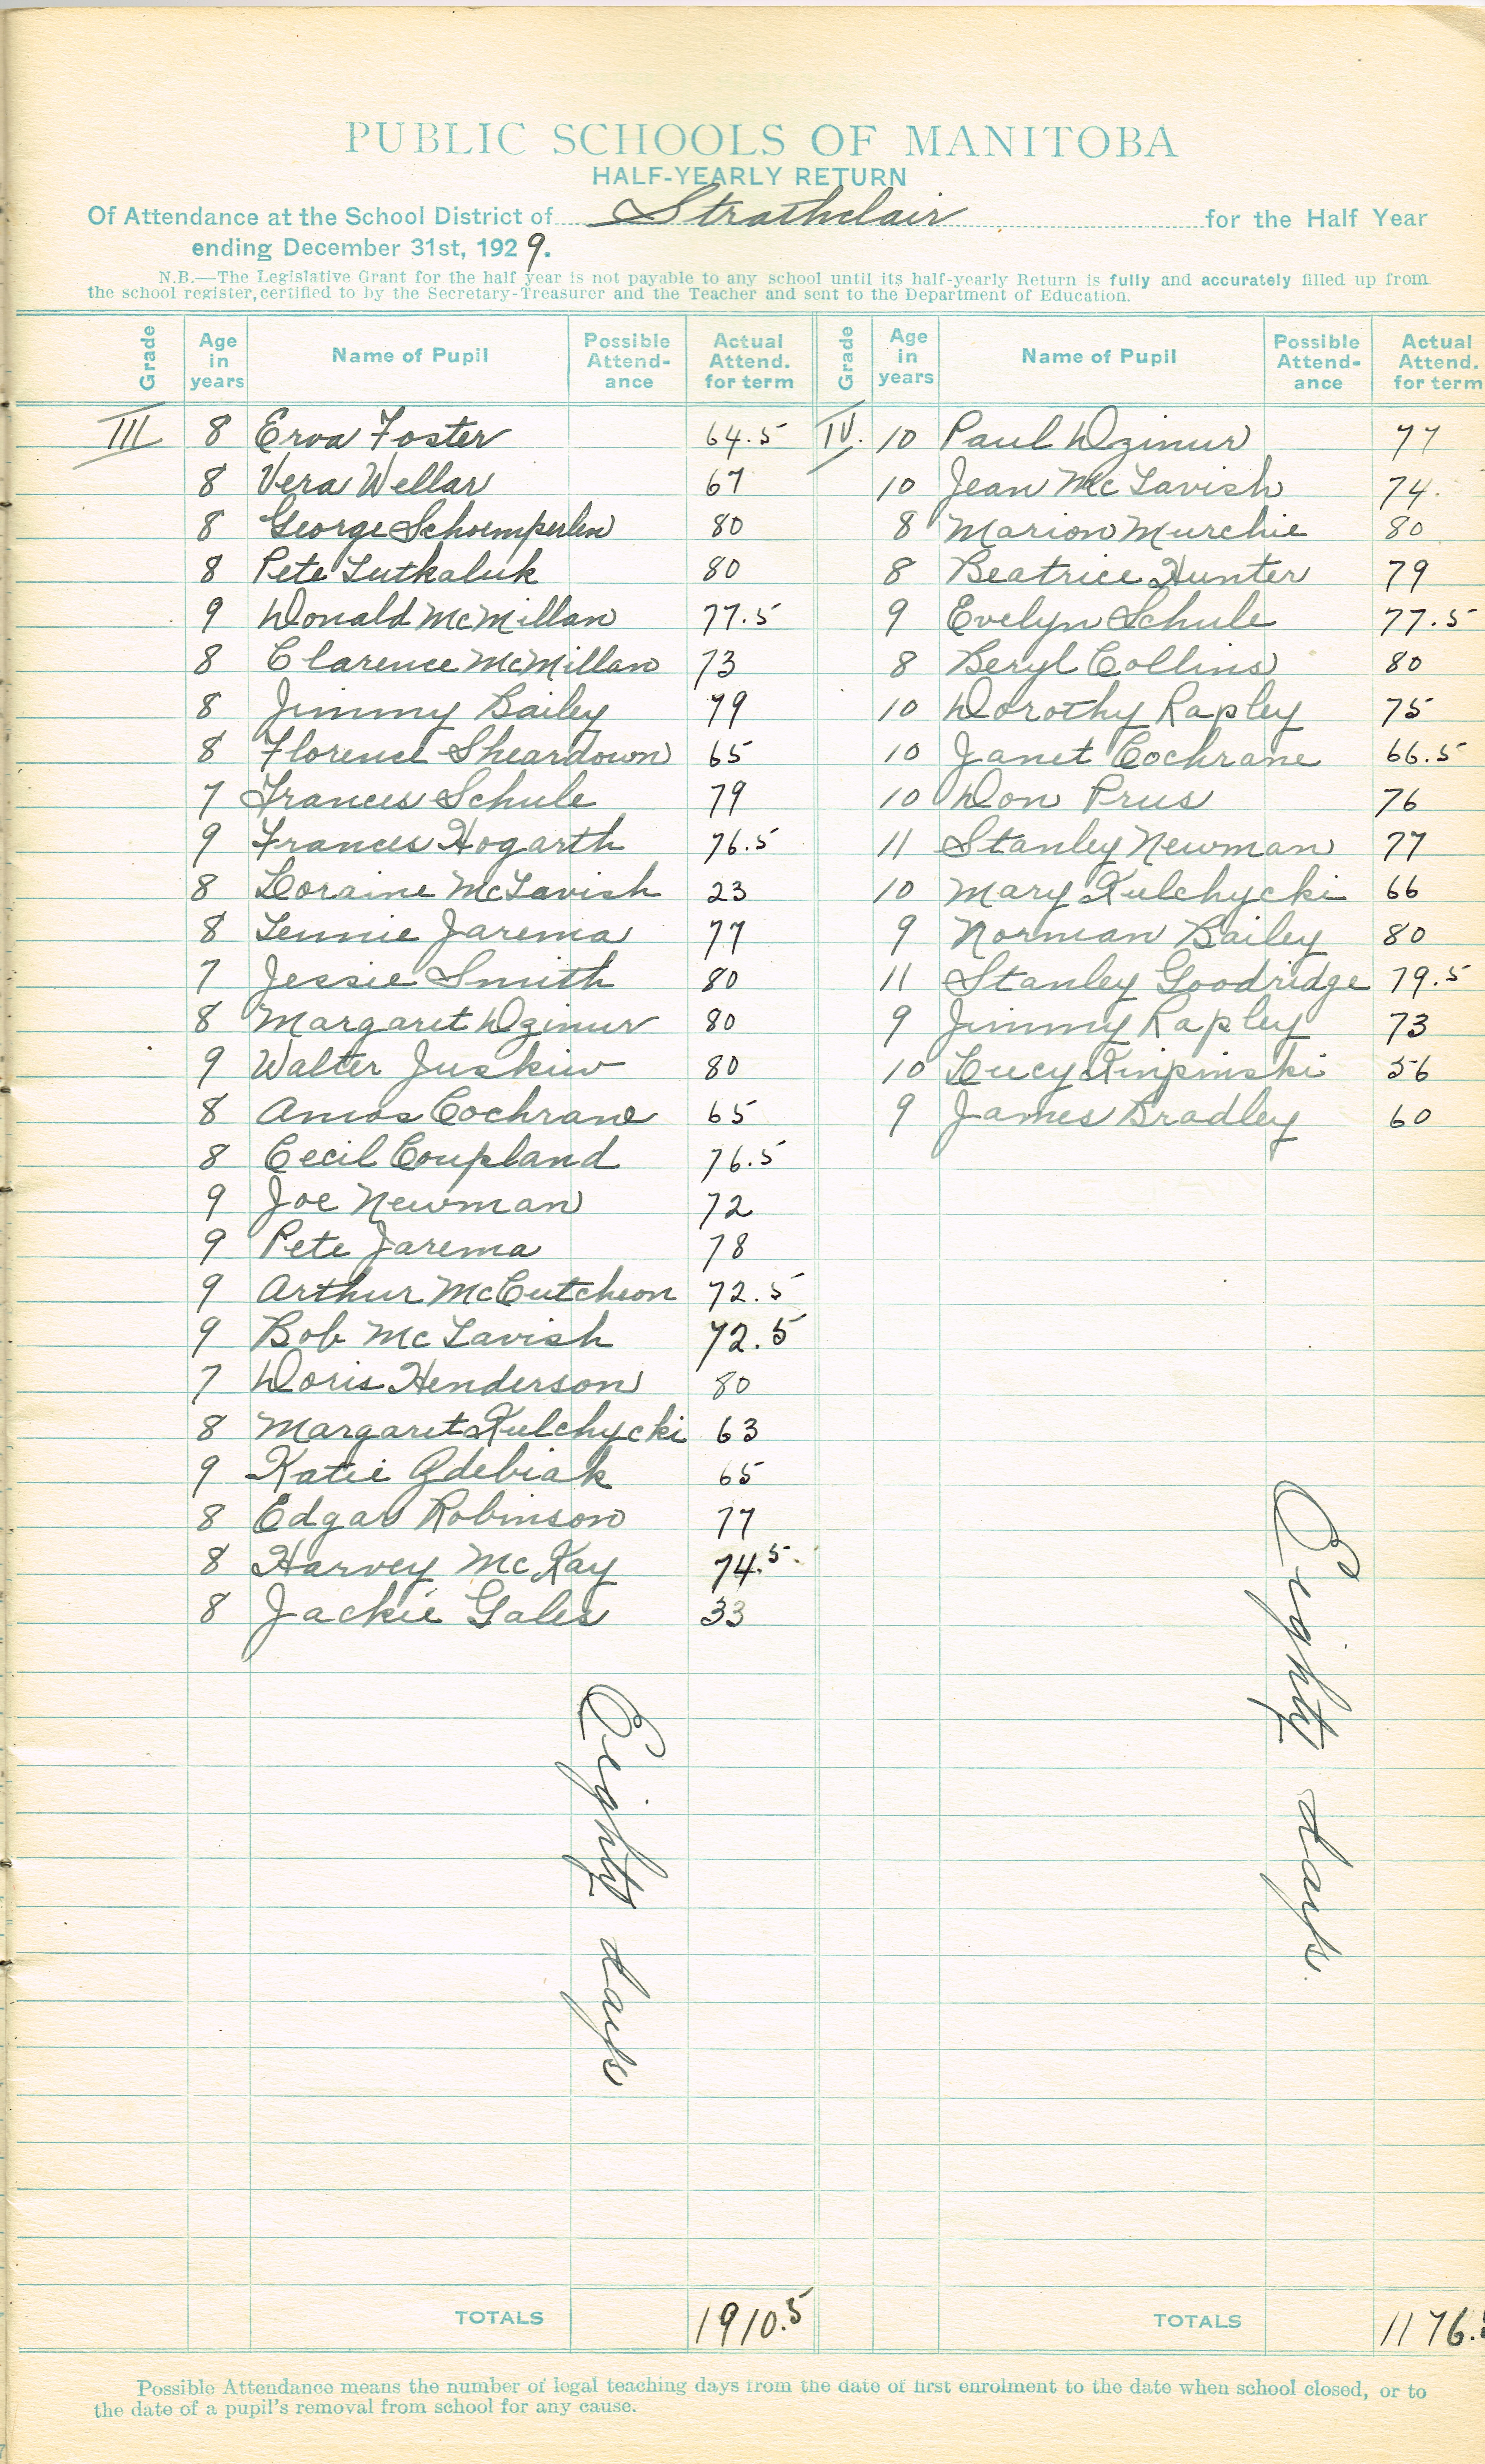 PUBLIC SCHOOLS OF MANITOBA
HALF-YEARLY RETURN
Of Attendance at the School District of Strathclair for the Half Year
ending December 31st, 1929.
N.B.—The Legislative Grant for the half year is not payable to any school until its half-yearly Return is fully and accurately filled up from
the school register, certified to by the Secretary-Treasurer and the Teacher and sent to the Department of Education.
Grade Age in years Name of Pupil Possible Attend-ance Actual Attend. for term
III 8 Erva Foster 64.5
8 Vera Wellar 67
8 George Schoemperlen 80
8 Pete Lutkaluk 80
9 Donald McMillan 77.5
8 Clarence McMillan 73
8 Jimmy Bailey 79
8 Florence Sheardown 65
7 Frances Schule 79
9 Frances Hogarth 76.5
8 Loraine McTavish 23
8 Jennie Jarema 77
7 Jessie Smith 80
8 Margaret Dzimur 80
9 Walter Juskiw 80
8 Amos Cochrane 65
8 Cecil Coupland 76.5
9 Joe Newman 72
9 Pete Jarema 78
9 Arthur McCutcheon 72.5
9 Bob McTavish 72.5
7 Doris Henderson 80
8 Margaret Kulchycki 63
9 Katie 65
8 Edgar Robinson 77
8 Harvey McKay 74.5
8 Jackie Gales 33
Eighty days
TOTALS 1910.5
Grade Age in years Name of Pupil Possible Attend-ance Actual Attend. for term
IV. 10 Paul Dzimur 77
10 Jean McTavish 74.
8 Marion Murchie 80
8 Beatrice Hunter 79
9 Evelyn Schule 77.5
8 Beryl Collins 80
10 Dorothy Rapley 75
10 Janet Cochrane 66.5
10 Don Prus 76
11 Stanley Newman 77
10 Mary Kulchycki 66
9 Norman Bailey 80
11 Stanley Goodridge 79.5
9 Jimmy Rapley 73
10 Lucy 56
9 James Bradley 60
Eighty days.
TOTALS 1176.
Possible Attendance means the number of legal teaching days from the date of first enrolment to the date when school closed, or to
the date of a pupil's removal from school for any cause.